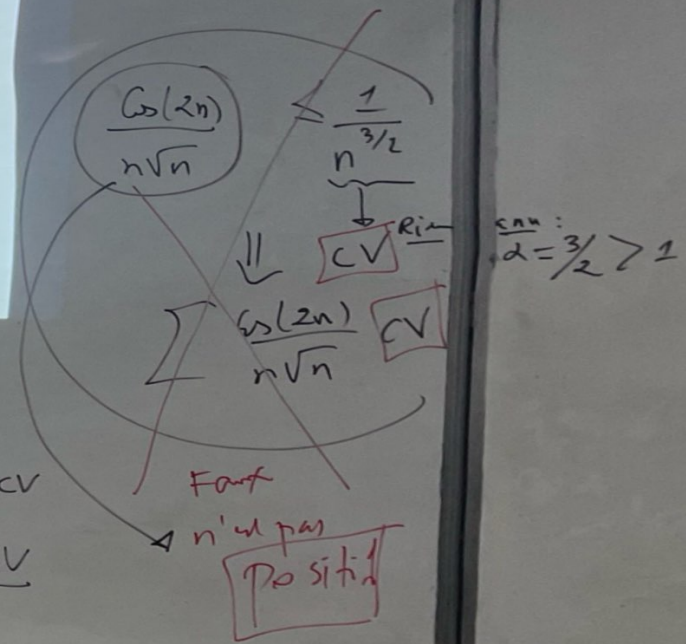 Cos(2n) / n√n ≤ 1 / n^3/2
⇓ CV Riemann :
α = 3/2 > 1
Σ Cos(2n) / n√n CV
CV
Faux
V
n'est pas
positif